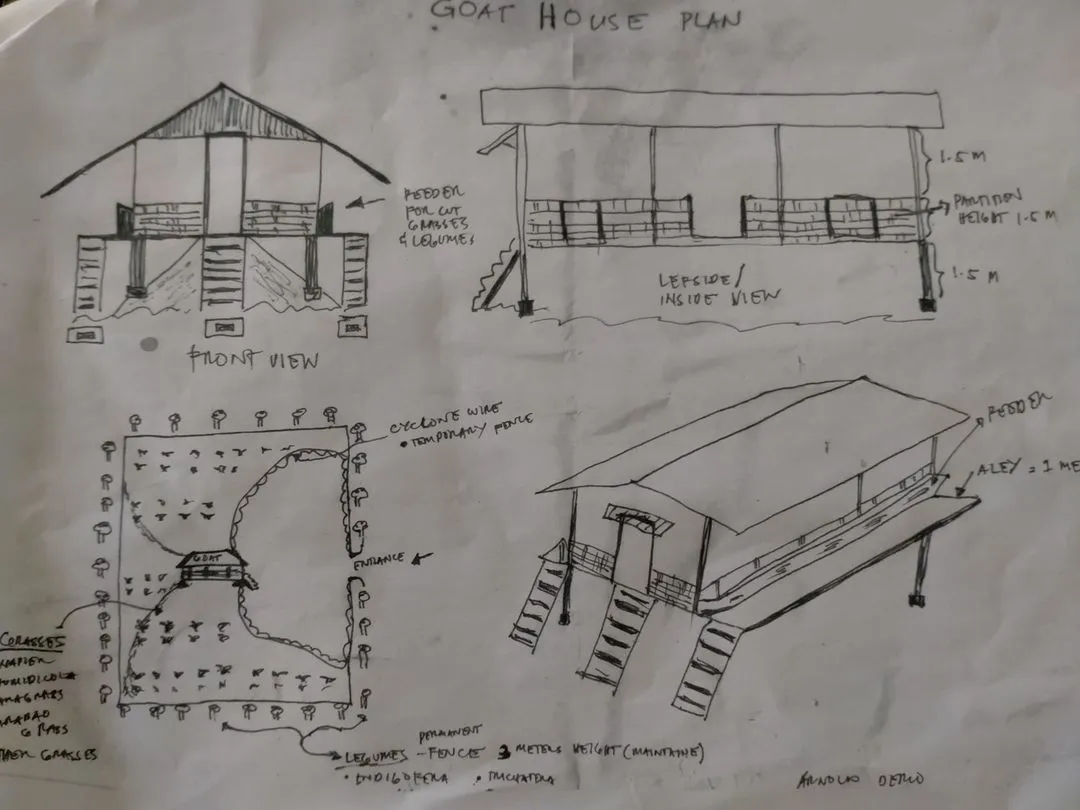 GOAT HOUSE PLAN
FEEDER
FOR CUT
GRASSES
& LEGUMES
FRONT VIEW
1.5 M
PARTITION
HEIGHT 1.5 M
1.5 M
LEFSIDE/
INSIDE VIEW
CYCLONE WIRE
• TEMPORARY FENCE
GOAT
ENTRANCE
FEEDER
ALEY = 1 ME
GRASSES
NAPIER
HUMIDICOLA
GRASS
GRASSES
PERMANENT
LEGUMES - FENCE 3 METERS HEIGHT (MAINTAINE)
• INDIGOFERA • TRICHATERA
ARNOLD